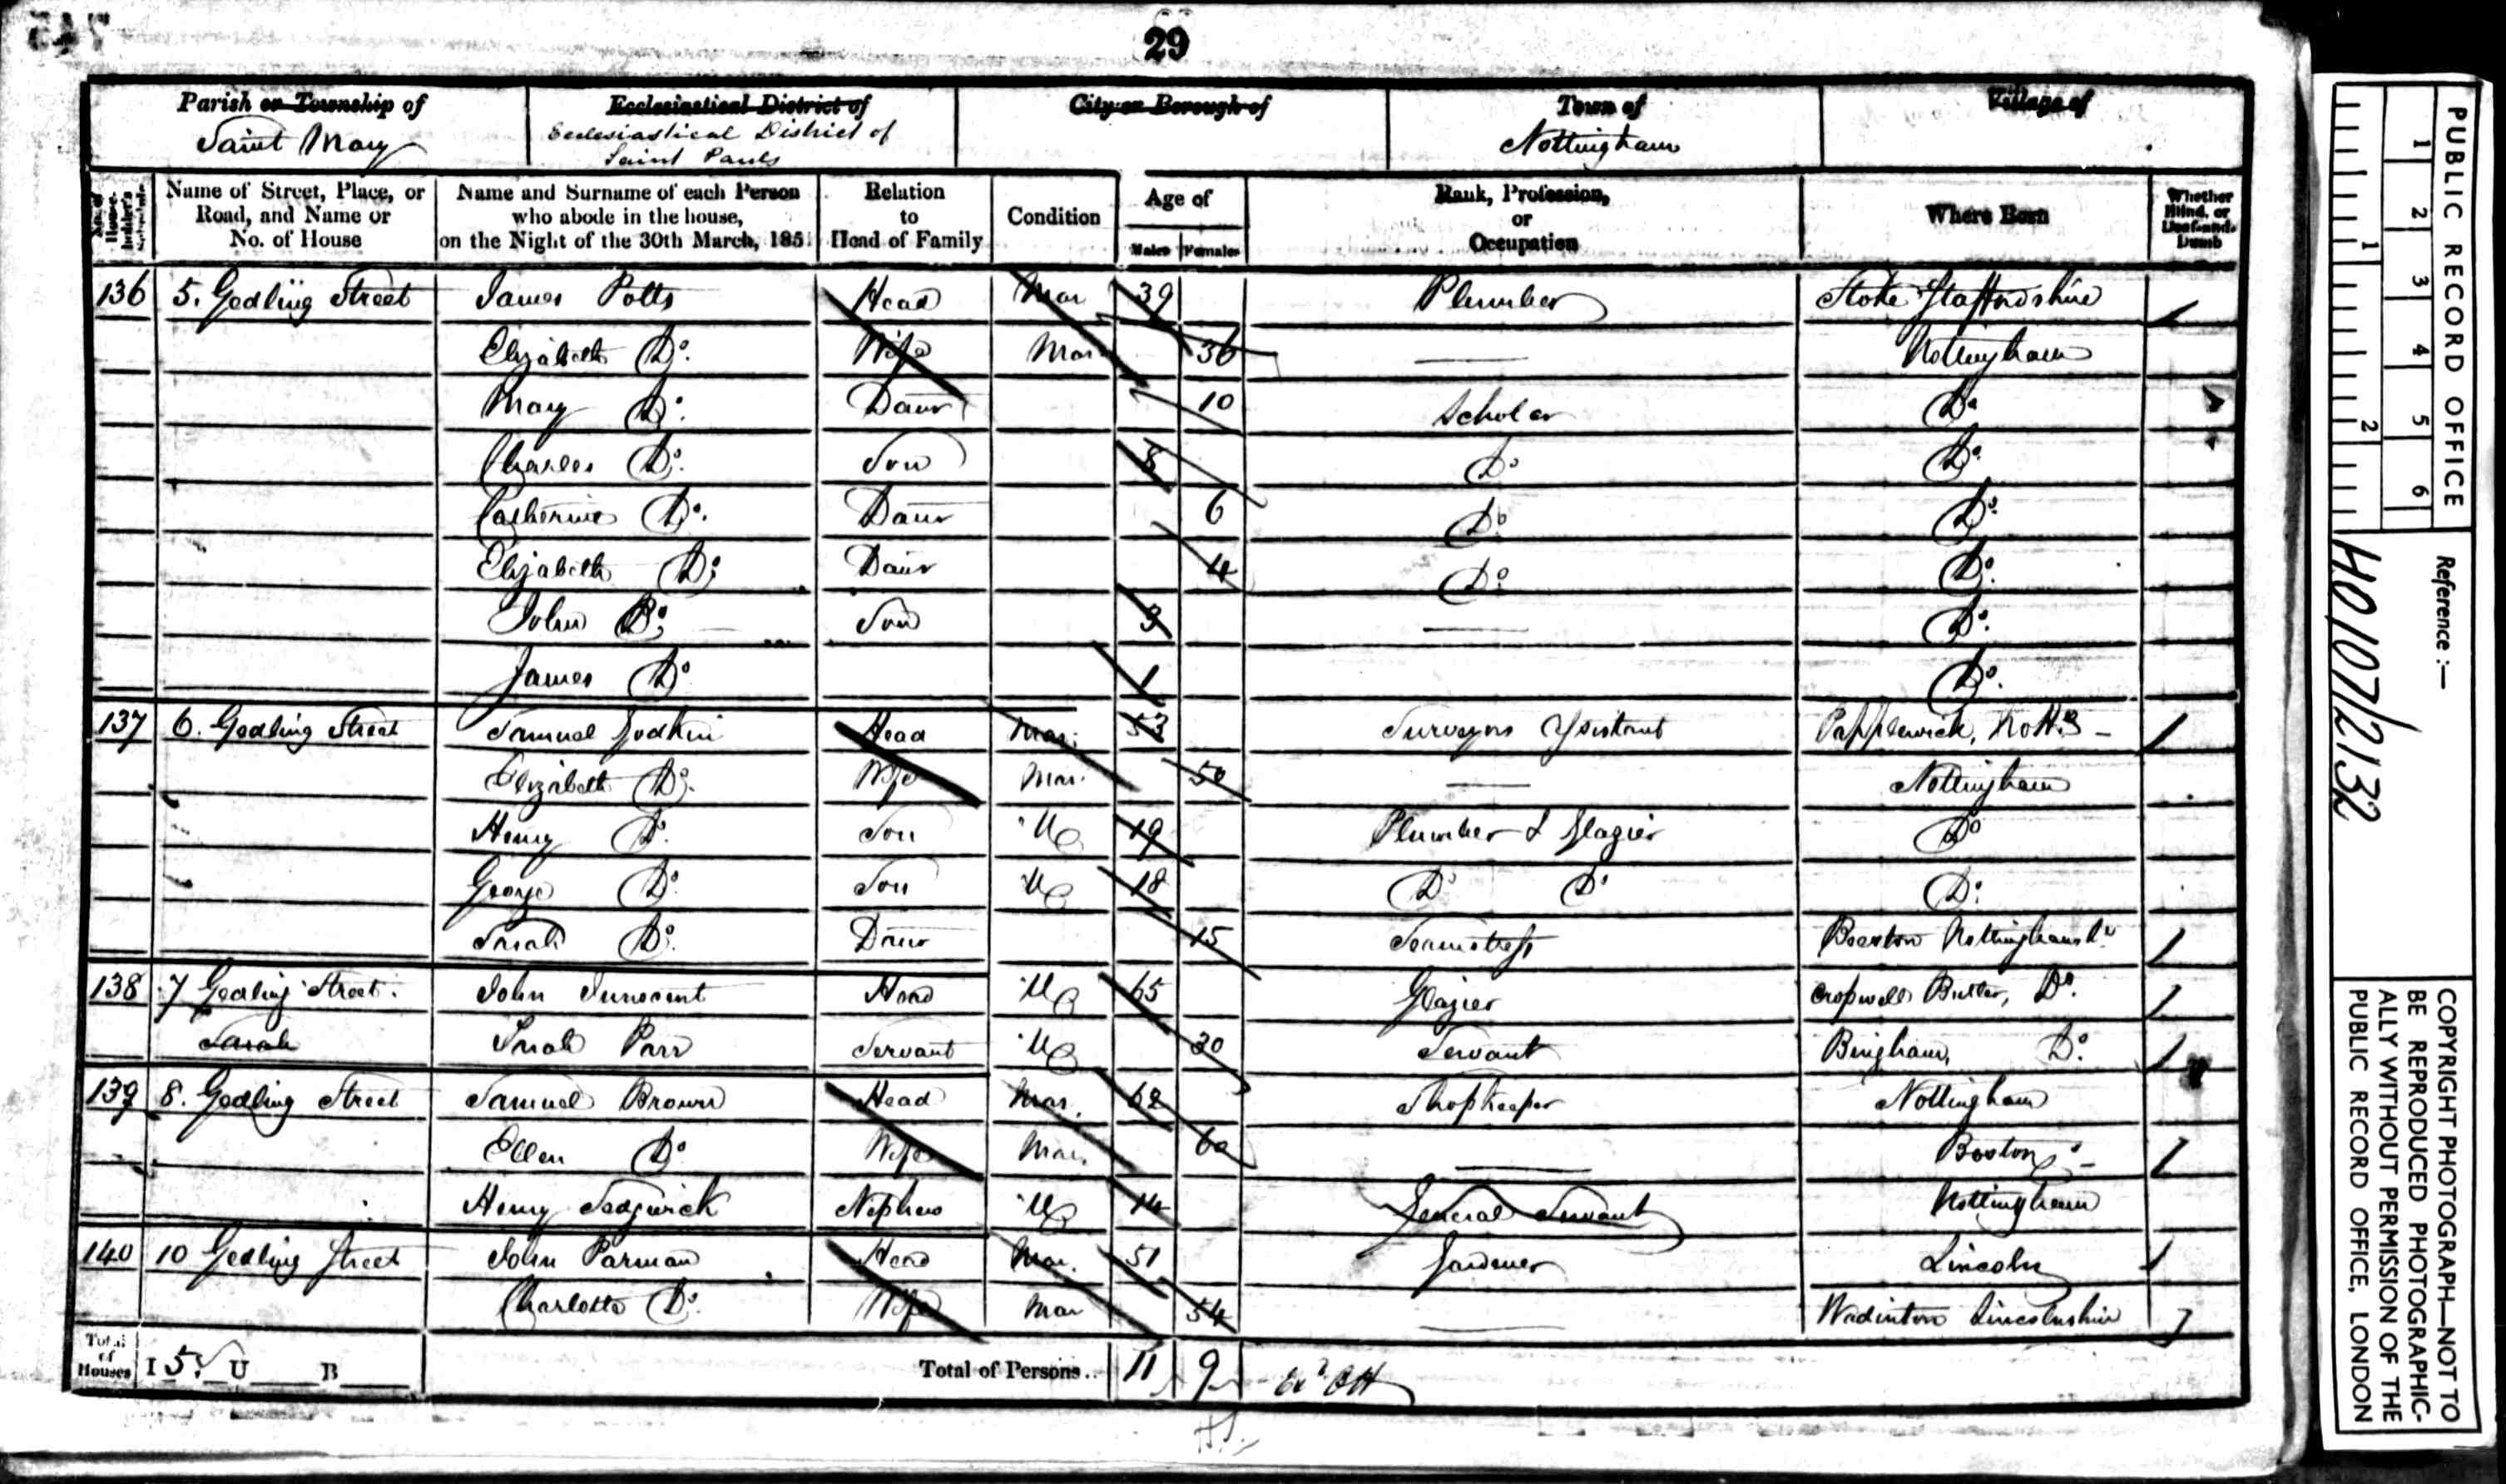 29
Parish or Township of
Saint Mary
Ecclesiastical District of
Ecclesiastical District of
Saint Pauls
City or Borough of
Town of
Nottingham
Village of
No. of House-holder's Schedule
Name of Street, Place, or Road, and Name or No. of House
Name and Surname of each Person who abode in the house, on the Night of the 30th March, 1851
Relation to Head of Family
Condition
Age of
Males Females
Rank, Profession, or Occupation
Where Born
Whether Blind, or Deaf-and-Dumb
136 5. Gedling Street James Potts Head Mar 39 Plumber Stoke Staffordshire
Elizabeth Do. Wife Mar 36 Nottingham
Mary Do. Daur 10 Scholar Do
Charles Do. Son 8 Do Do.
Catherine Do. Daur 6 Do Do.
Elizabeth Do. Daur 4 Do. Do.
John Do. Son 3 Do.
James Do 1 Do.
137 6. Gedling Street Samuel Godkin Head Mar. 53 Surveyors Papplewick, Notts
Elizabeth Do. Wife Mar. 50 Nottingham
Henry Do. Son U 19 Plumber & Glazier Do
George Do. Son U 18 Do Do Do.
Sarah Do. Daur 15 Seamstress Beeston
138 7 Gedling Street. John Innocent Head U 65 Glazier Cropwell Butler, Do.
Sarah Sarah Parr Servant U 30 Servant Bingham, Do.
139 8. Gedling Street Samuel Brown Head Mar. 62 Shopkeeper Nottingham
Ellen Do Wife Mar. 60 Boston
Henry Sedgwick Nephew U 14 General Servant Nottingham
140 10 Gedling Street John Parman Head Mar. 51 Gardener Lincoln
Charlotte Do. Wife Mar 54 Wadinton Lincolnshire
Total of Houses I 5 U B Total of Persons.. 11 9
PUBLIC RECORD OFFICE
1 2 3 4 5 6
1 2
Reference :—
HO/107/2132
COPYRIGHT PHOTOGRAPH—NOT TO
BE REPRODUCED PHOTOGRAPHIC-
ALLY WITHOUT PERMISSION OF THE
PUBLIC RECORD OFFICE, LONDON